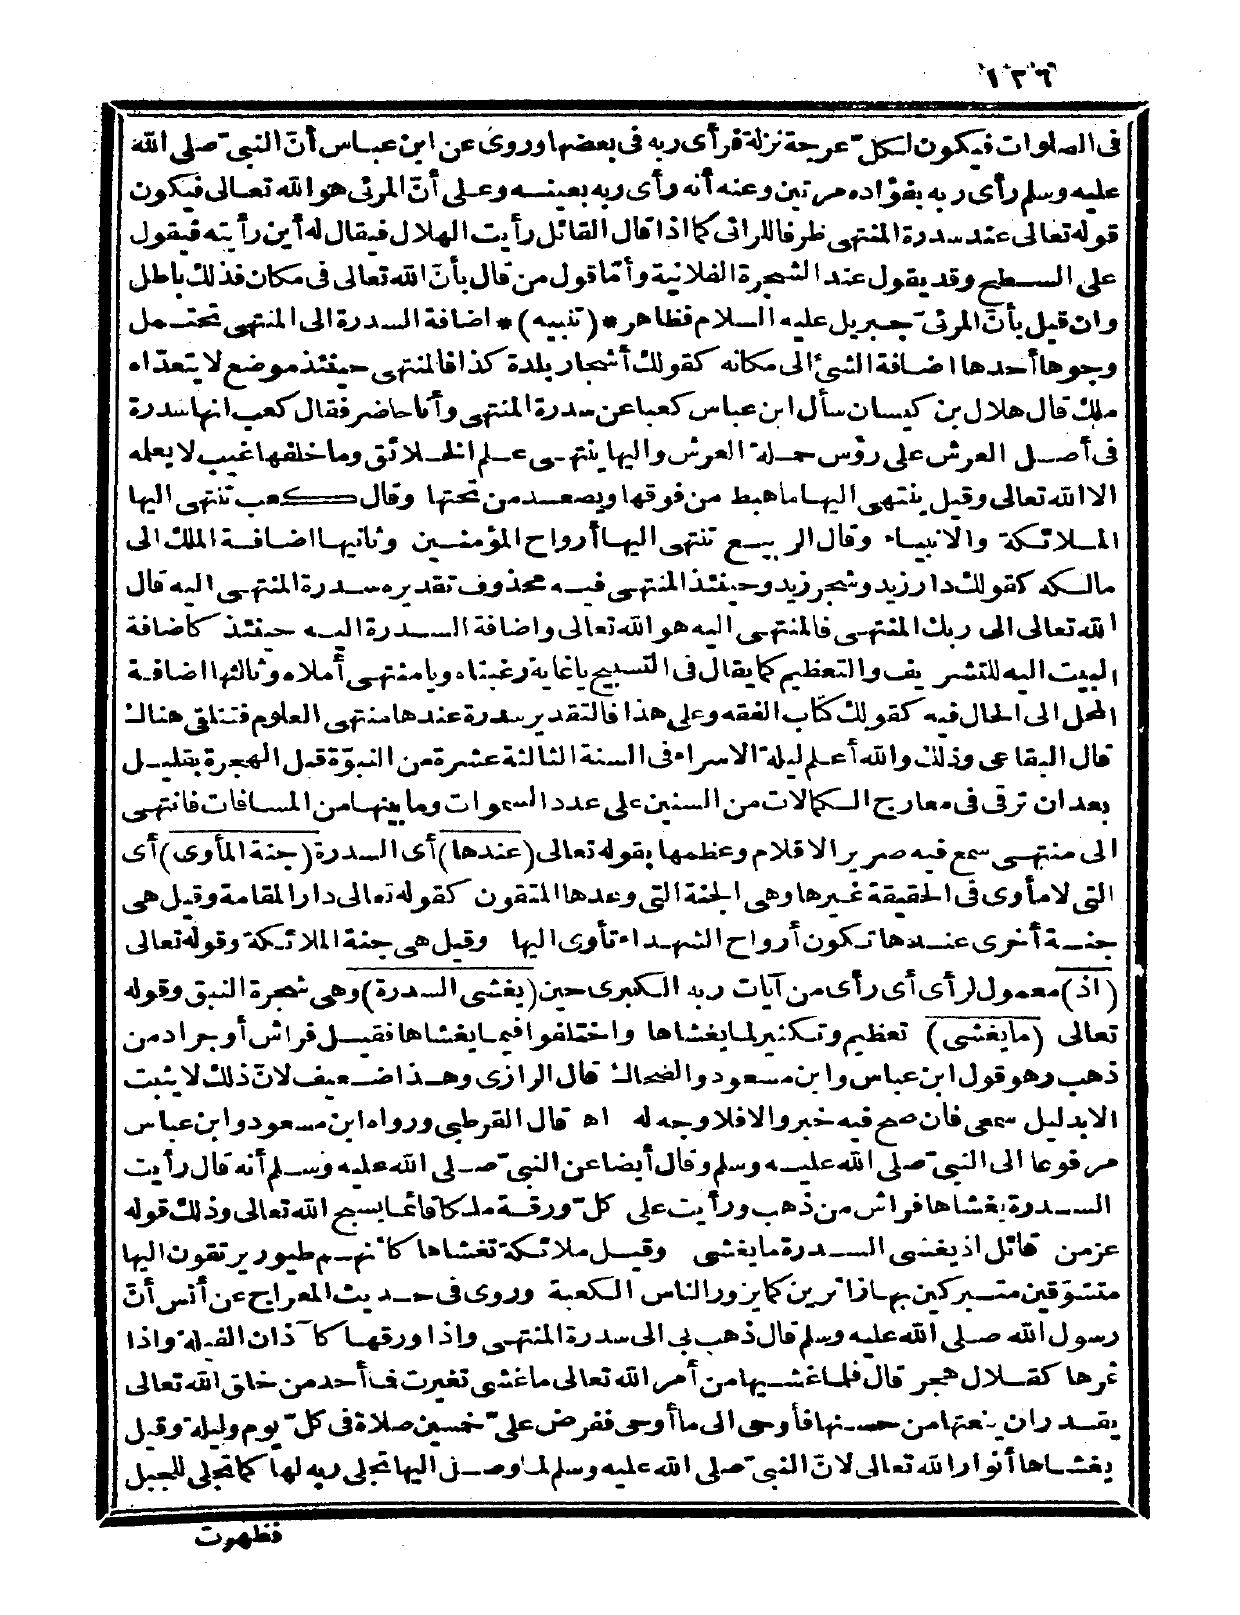 ١٢٦
فى الصلوات فيكون لكل عرجة نزلة فرأى ربه فى بعضها وروى عن ابن عباس أنّ النبىّ صلى الله
عليه وسلم رأى ربه بفؤاده مرتين وعنه أنه رأى ربه بعينه وعلى أنّ المرئى هو الله تعالى فيكون
قوله تعالى عند سدرة المنتهى ظرفا للرائى كما اذا قال القائل رأيت الهلال فيقال له أين رأيته فيقول
على السطح وقد يقول عند الشجرة الفلانية وأمّا قول من قال بأنّ الله تعالى فى مكان فذلك باطل
وان قيل بأنّ المرئىّ جبريل عليه السلام فظاهر *(تنبيه)* اضافة السدرة الى المنتهى تحتمل
وجوها أحدها اضافة الشئ الى مكانه كقولك أشجار بلدة كذا فالمنتهى حينئذ موضع لا يتعدّاه
ملك قال هلال بن كيسان سأل ابن عباس كعبا عن سدرة المنتهى وأنا حاضر فقال كعب انها سدرة
فى أصل العرش على رؤس حملة العرش واليها ينتهى علم الخلائق وما خلفها غيب لا يعلمه
الا الله تعالى وقيل ينتهى اليها ما هبط من فوقها ويصعد من تحتها وقال كعب تنتهى اليها
الملائكة والانبياء وقال الربيع تنتهى اليها أرواح المؤمنين وثانيها اضافة الملك الى
مالكه كقولك دار زيد وشجر زيد وحينئذ المنتهى فيه محذوف تقديره سدرة المنتهى اليه قال
الله تعالى الى ربك المنتهى فالمنتهى اليه هو الله تعالى واضافة السدرة اليه حينئذ كاضافة
البيت اليه للتشريف والتعظيم كما يقال فى التسبيح يا غاية رغبتاه ويا منتهى أملاه وثالثها اضافة
المحل الى الحال فيه كقولك كتاب الفقه وعلى هذا فالتقدير سدرة عندها منتهى العلوم فتتلقى هناك
قال البقاعى وذلك والله أعلم ليلة الاسراء فى السنة الثالثة عشرة من النبوّة قبل الهجرة بقليل
بعد ان ترقى فى معارج الكمالات من السنين على عدد السموات وما بينها من المسافات فانتهى
الى منتهى سمع فيه صرير الاقلام وعظمها بقوله تعالى (عندها) أى السدرة (جنة المأوى) أى
التى لا مأوى فى الحقيقة غيرها وهى الجنة التى وعدها المتقون كقوله تعالى دار المقامة وقيل هى
جنة أخرى عندها تكون أرواح الشهداء تأوى اليها وقيل هى جنة الملائكة وقوله تعالى
(اذ) معمول لرأى أى رأى من آيات ربه الكبرى حين (يغشى السدرة) وهى شجرة النبق وقوله
تعالى (ما يغشى) تعظيم وتكثير لما يغشاها واختلفوا فيما يغشاها فقيل فراش أو جراد من
ذهب وهو قول ابن عباس وابن مسعود والضحاك قال الرازى وهذا ضعيف لانّ ذلك لا يثبت
الا بدليل سمعى فان صح فيه خبر والا فلا وجه له اه قال القرطبى ورواه ابن مسعود وابن عباس
مرفوعا الى النبىّ صلى الله عليه وسلم وقال أيضا عن النبىّ صلى الله عليه وسلم أنه قال رأيت
السدرة يغشاها فراش من ذهب ورأيت على كلّ ورقة ملكا قائما يسبح الله تعالى وذلك قوله
عز من قائل اذ يغشى السدرة ما يغشى وقيل ملائكة تغشاها كأنهم طيور يرتقون اليها
متشوّقين متبركين بها زائرين كما يزور الناس الكعبة وروى فى حديث المعراج عن أنس أنّ
رسول الله صلى الله عليه وسلم قال ذهب بى الى سدرة المنتهى واذا ورقها كآذان الفيلة واذا
ثمرها كقلال هجر قال فلما غشيها من أمر الله تعالى ما غشى تغيرت فما أحد من خلق الله تعالى
يقدر ان ينعتها من حسنها فأوحى الى ما أوحى ففرض علىّ خمسين صلاة فى كلّ يوم وليلة وقيل
يغشاها أنوار الله تعالى لانّ النبىّ صلى الله عليه وسلم لما وصل اليها تجلى ربه لها كما تجلى للجبل
فظهرت